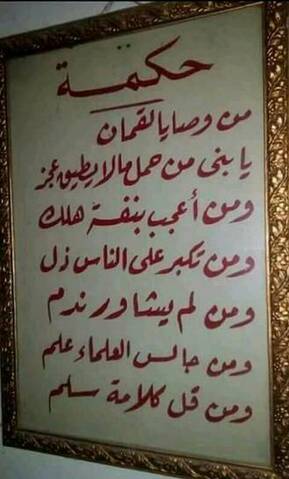 حكمة
من وصايا لقمان
يا بنى من حمل مالا يطيق عجز
ومن أعجب بنفسة هلك
ومن تكبر على الناس ذل
ومن لم يشاور ندم
ومن جالس العلماء علم
ومن قل كلامة سلم